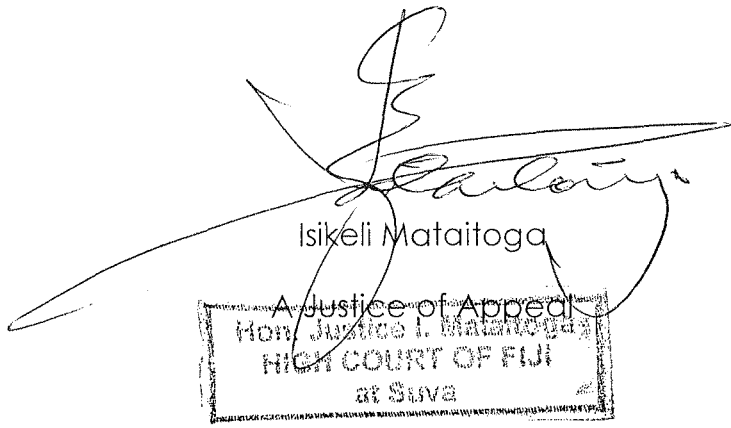 Isikeli Mataitoga
A Justice of Appeal
Hon. Justice I. Mataitoga
HIGH COURT OF FIJI
at Suva